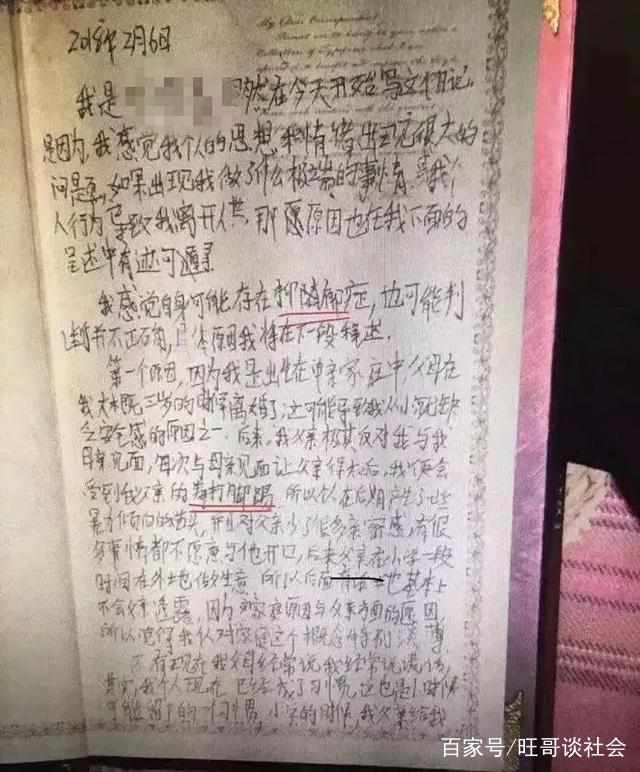 2018年2月6日
My Chère Correspondent
我是 突然在今天开始写这个日记
是因为,我感觉我个人的思想和情绪出现很大的
问题,如果出现我做了什么极端的事情,或我个
人行为导致我离开人世,那愿原因也在我下面的
呈述中有迹可寻
我感觉自身可能存在抑郁症,也可能判
断并不正确,具体原因我将在下一段释述.
第一个原因,因为我是出生在单亲家庭中,父母在
我大概三岁的时候离婚了,这可能导致我从小就缺
乏安全感的原因之一.后来,我父亲极其反对我与我
母亲见面,每次与母亲见面让父亲得知后,我便会
受到我父亲的毒打脚踢 所以我在后期产生了一些
暴力倾向的苗头,并且对父亲少了很多亲密感,有很
多事情都不愿意与他开口,后来父亲在小学一段
时间在外地做生意 所以后面 也基本上
不会对 透露,因为 家庭原因与父亲方面的原因
所以觉得我从对家庭这个概念特别淡薄
还有现在我父母经常说我经常说谎话,
其实,我个人现在已经成了习惯,这也是小时候
留下的一个习惯,小学的时候,我父亲给我
百家号/旺哥谈社会